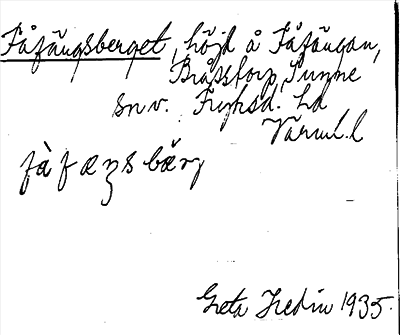 Fåfängsberget, höjd å Fåfängan,
Bråstorp, Sunne
sn v. Fryksd. hd
Värml. l
fàfæŋsbärj
Greta Hedin 1935.